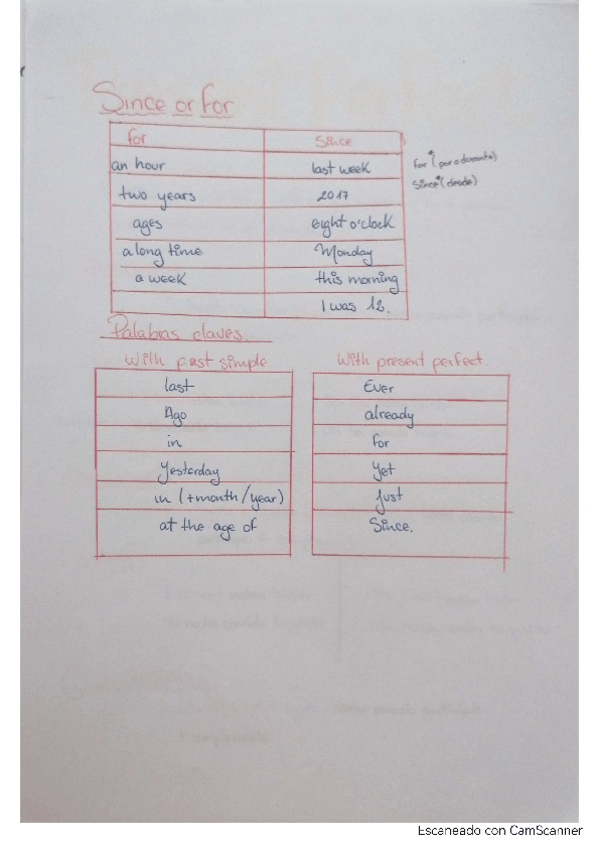 Since or for
for Since
an hour last week
for*(para o durante)
two years 2017
Since*(desde)
ages eight o'clock
a long time Monday
a week this morning
I was 12.
Palabras claves.
With past simple With present perfect.
last Ever
Ago already
in for
Yesterday Yet
in (+month/year) Just
at the age of Since.
Escaneado con CamScanner